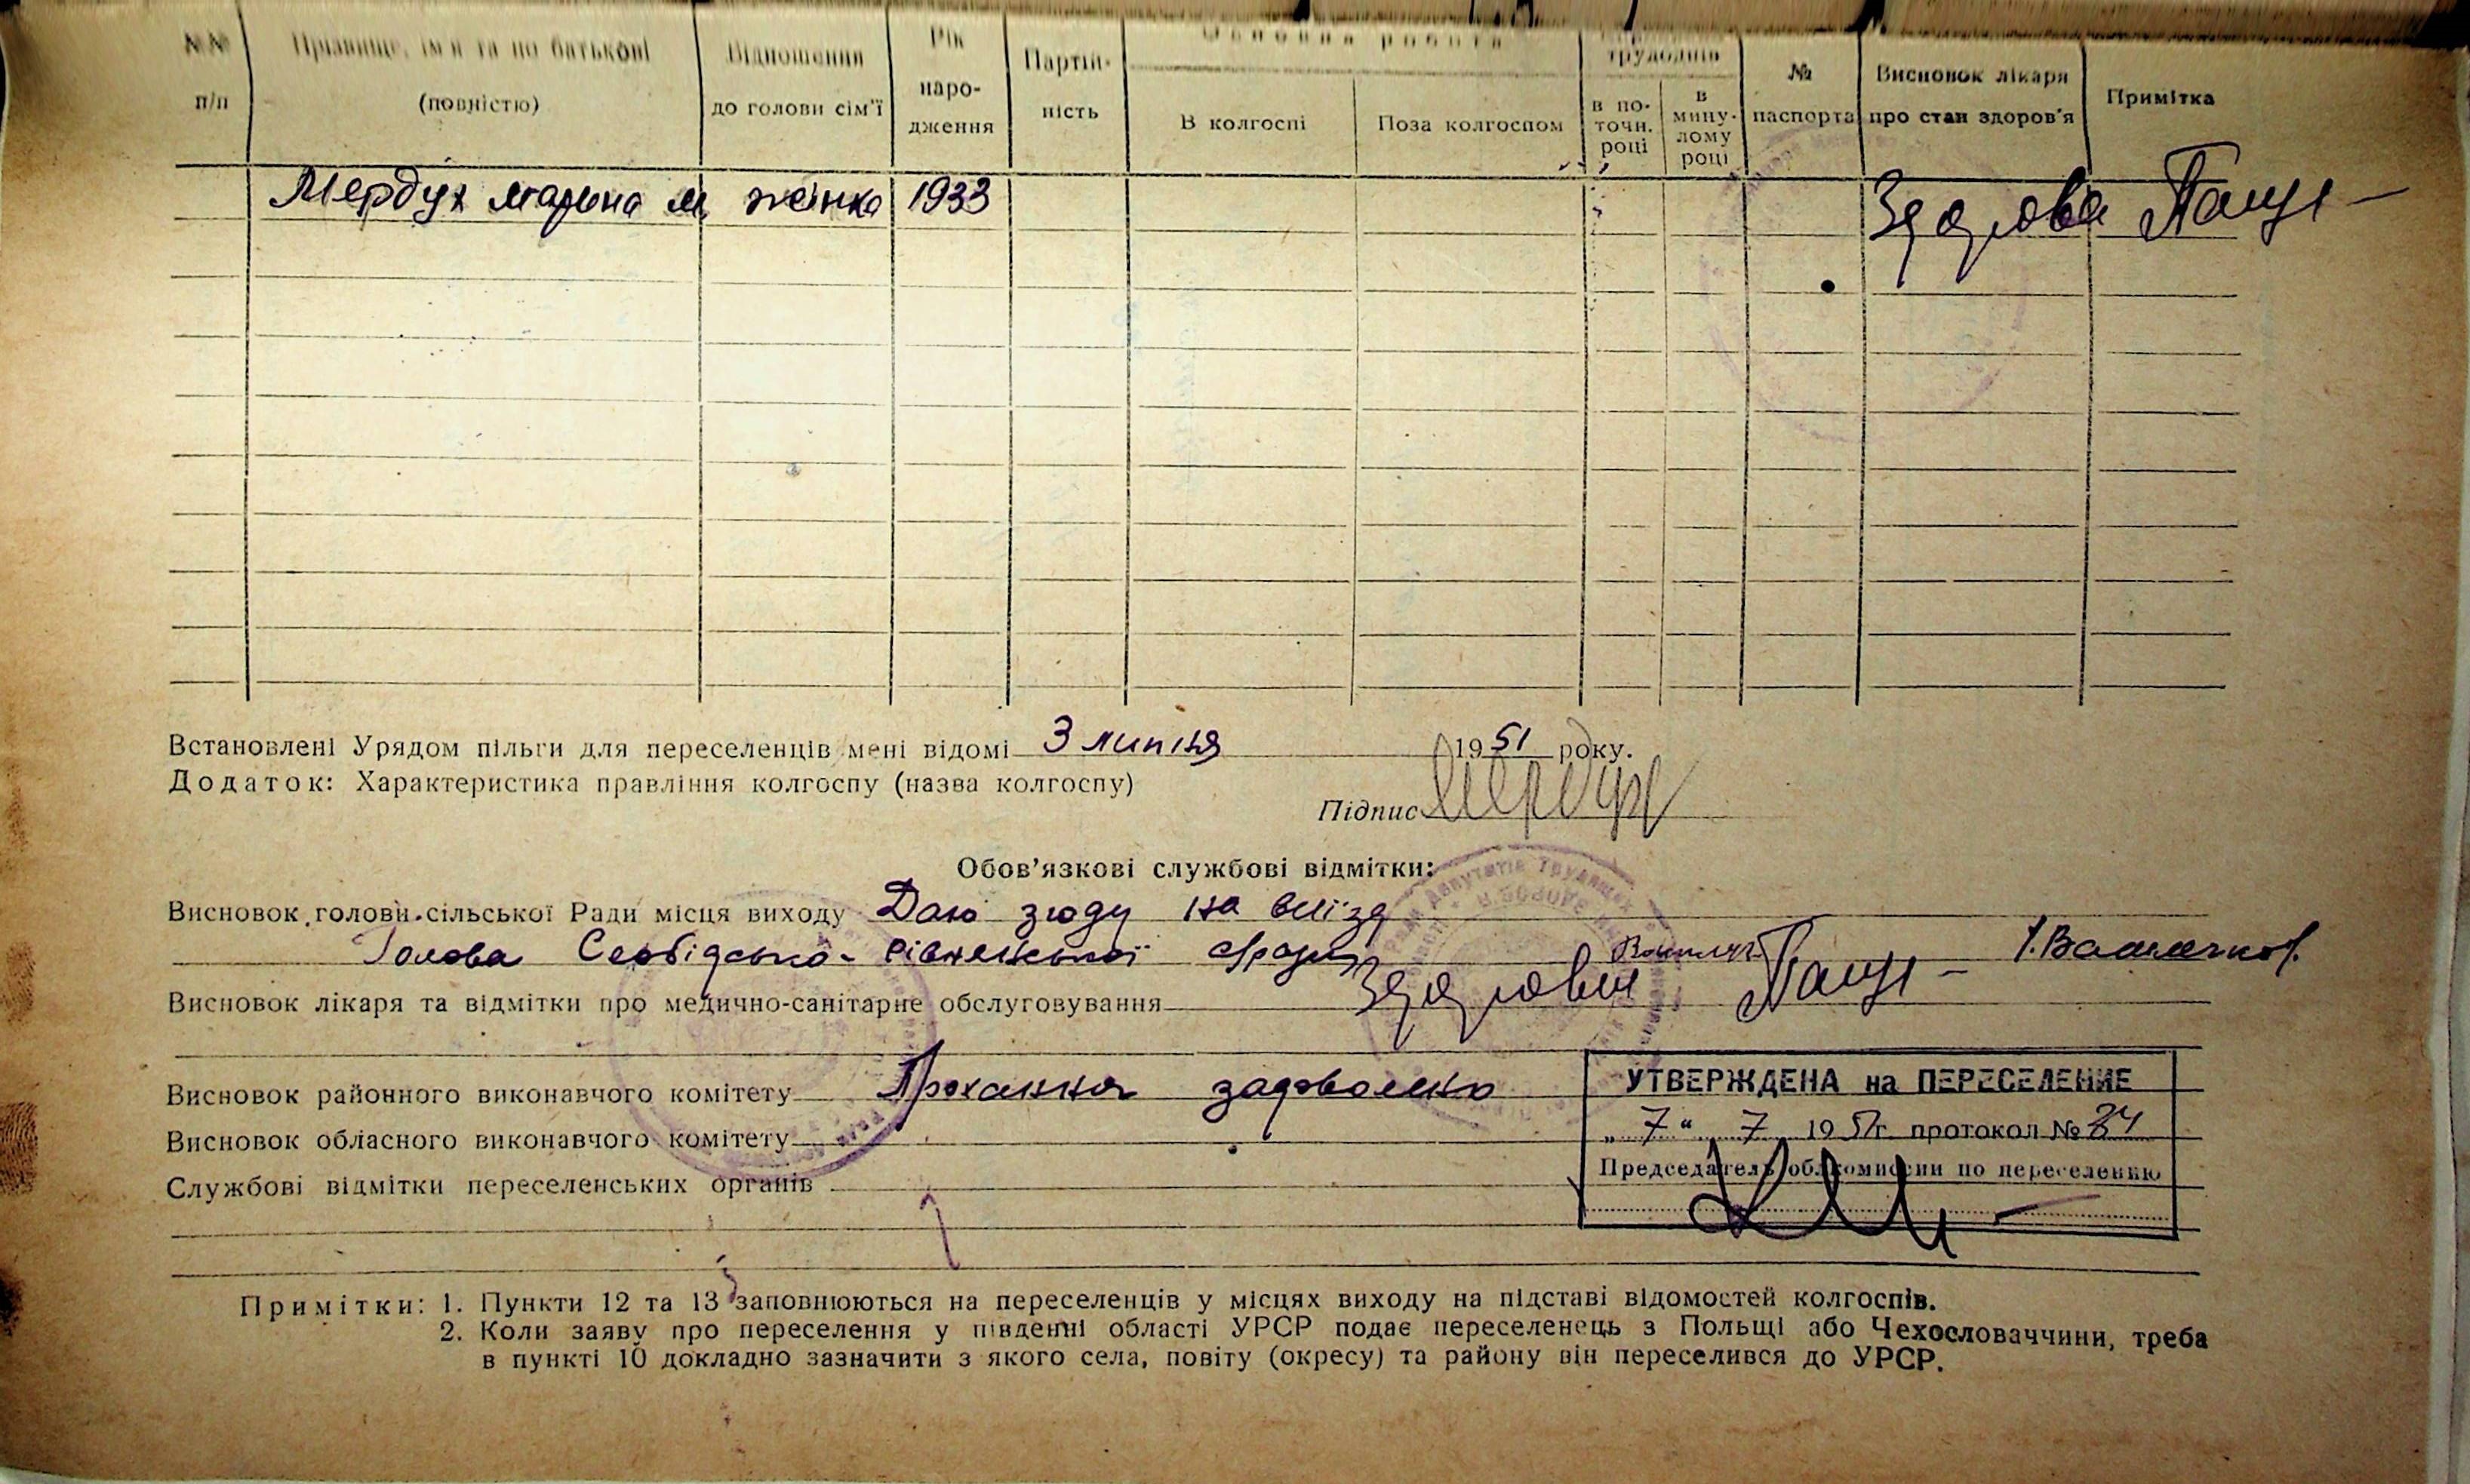 №№ п/п
Прізвище, ім'я та по батькові (повністю)
Відношення до голови сім'ї
Рік народження
Партійність
Основна робота
В колгоспі
Поза колгоспом
трудоднів
в поточн. році
в минулому році
№ паспорта
Висновок лікаря про стан здоров'я
Примітка
Мердух Марына М. жінка 1933 Здорова
Встановлені Урядом пільги для переселенців мені відомі 3 липня 1951 року.
Додаток: Характеристика правління колгоспу (назва колгоспу)
Підпис Мердух
Обов'язкові службові відмітки:
Висновок голови сільської Ради місця виходу Даю згоду на виїзд
Голова с/ради
Висновок лікаря та відмітки про медично-санітарне обслуговування Здорови
Висновок районного виконавчого комітету Прохання задоволено
Висновок обласного виконавчого комітету
Службові відмітки переселенських органів
УТВЕРЖДЕНА на ПЕРЕСЕЛЕНИЕ
„7“ 7 1951г. протокол № 84
Председатель облкомиссии по переселению
Примітки: 1. Пункти 12 та 13 заповнюються на переселенців у місцях виходу на підставі відомостей колгоспів.
2. Коли заяву про переселення у південні області УРСР подає переселенець з Польщі або Чехословаччини, треба
в пункті 10 докладно зазначити з якого села, повіту (окресу) та району він переселився до УРСР.